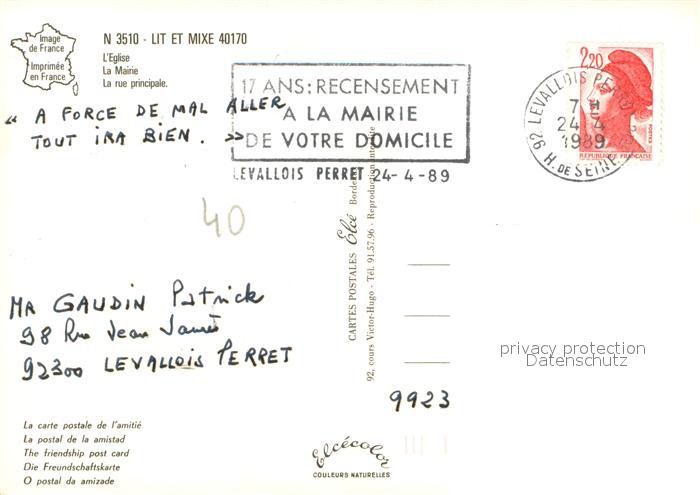 Image
de France
Imprimée
en France
N 3510 - LIT ET MIXE 40170
L'Eglise
La Mairie
La rue principale.
« A FORCE DE MAL ALLER
TOUT IRA BIEN. »
17 ANS: RECENSEMENT
A LA MAIRIE
DE VOTRE DOMICILE
LEVALLOIS PERRET 24-4-89
2,20
92 LEVALLOIS PERRET
7 H
24-4
1989
H. DE SEINE
POSTES
REPUBLIQUE FRANÇAISE
40
MR GAUDIN Patrick
98 Rue Jean Jaurès
92300 LEVALLOIS PERRET
CARTES POSTALES Elcé Bordeaux
92, cours Victor-Hugo - Tél. 91.57.96 - Reproduction interdite
privacy protection
Datenschutz
9923
La carte postale de l'amitié
La postal de la amistad
The friendship post card
Die Freundschaftskarte
O postal da amizade
Elcécolor
COULEURS NATURELLES